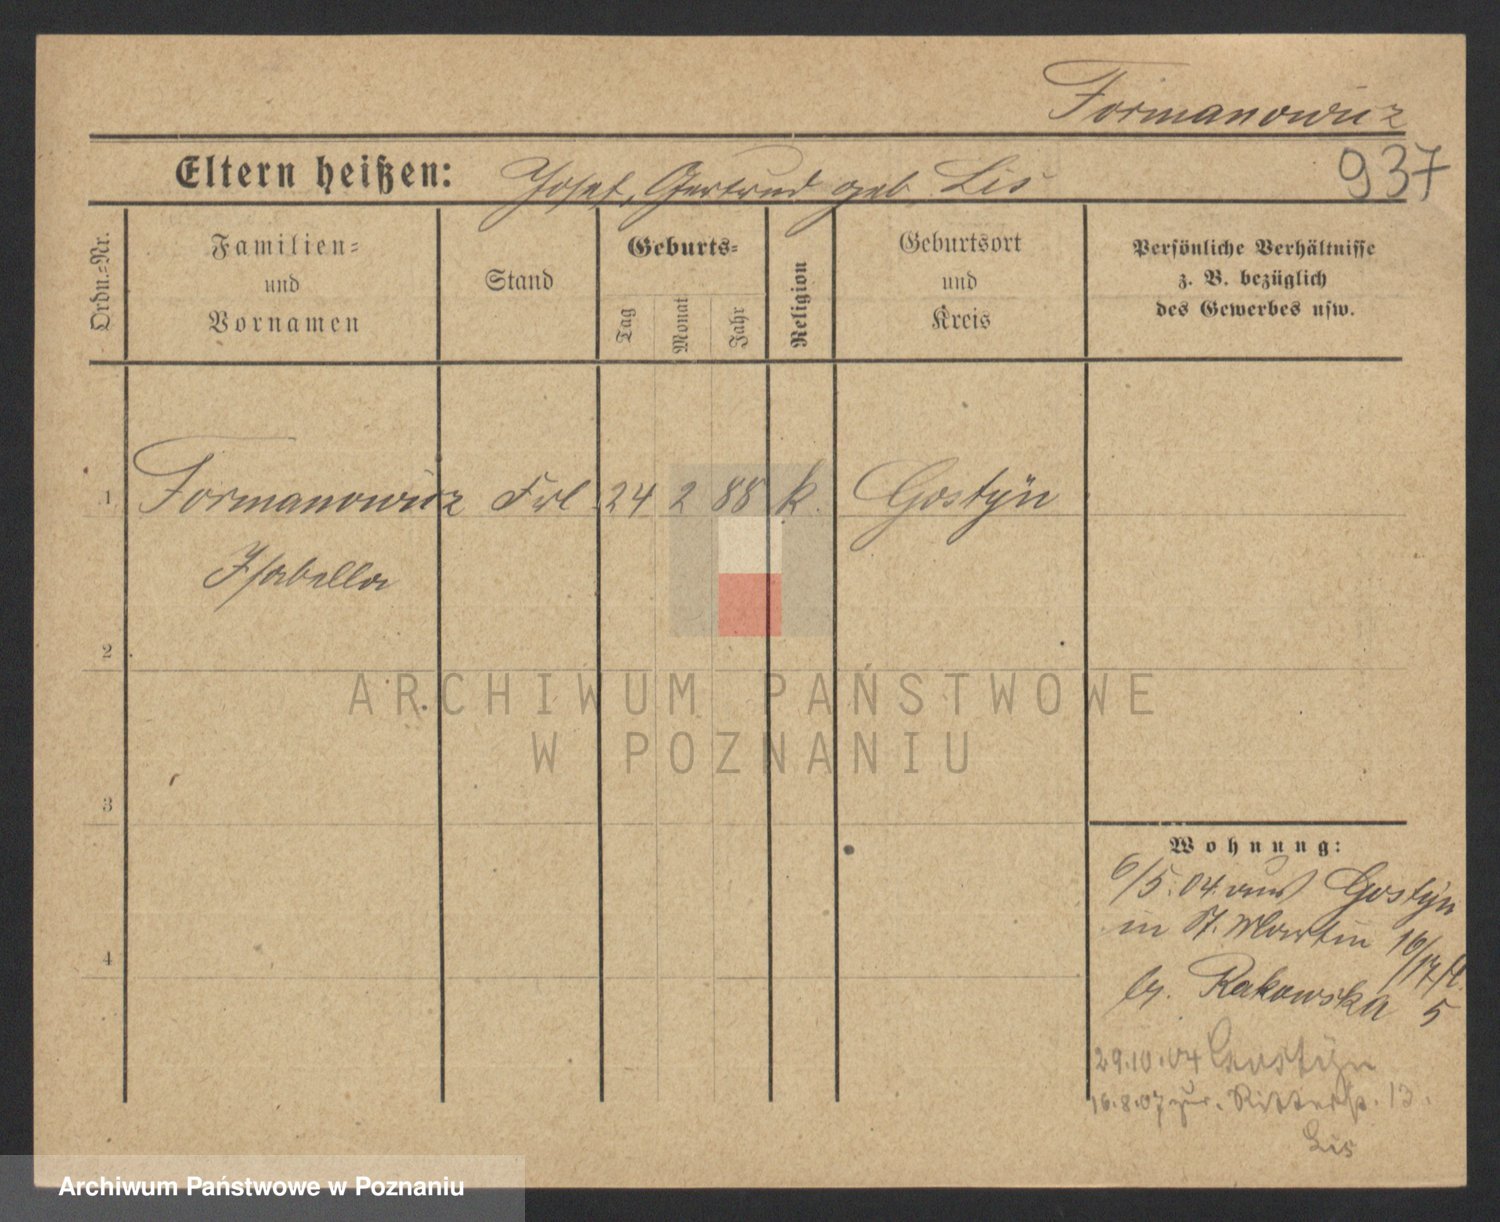 Formanowicz
937
Eltern heißen: Josef, Gertrud geb. Lis
Ordn.=Nr.
Familien=
und
Vornamen
Stand
Geburts=
Tag
Monat
Jahr
Religion
Geburtsort
und
Kreis
Persönliche Verhältnisse
z. B. bezüglich
des Gewerbes usw.
1 Formanowicz Frl 24 2 88 k. Gostyn
Isabella
2
3
4
ARCHIWUM PAŃSTWOWE
W POZNANIU
Wohnung:
6/5.04. aus Gostyn
in St. Martin 16/17
Rakowska 5
29.10.04 Gostyn
16.8.07 zur. Ritterstr. 13.
Lis
Archiwum Państwowe w Poznaniu